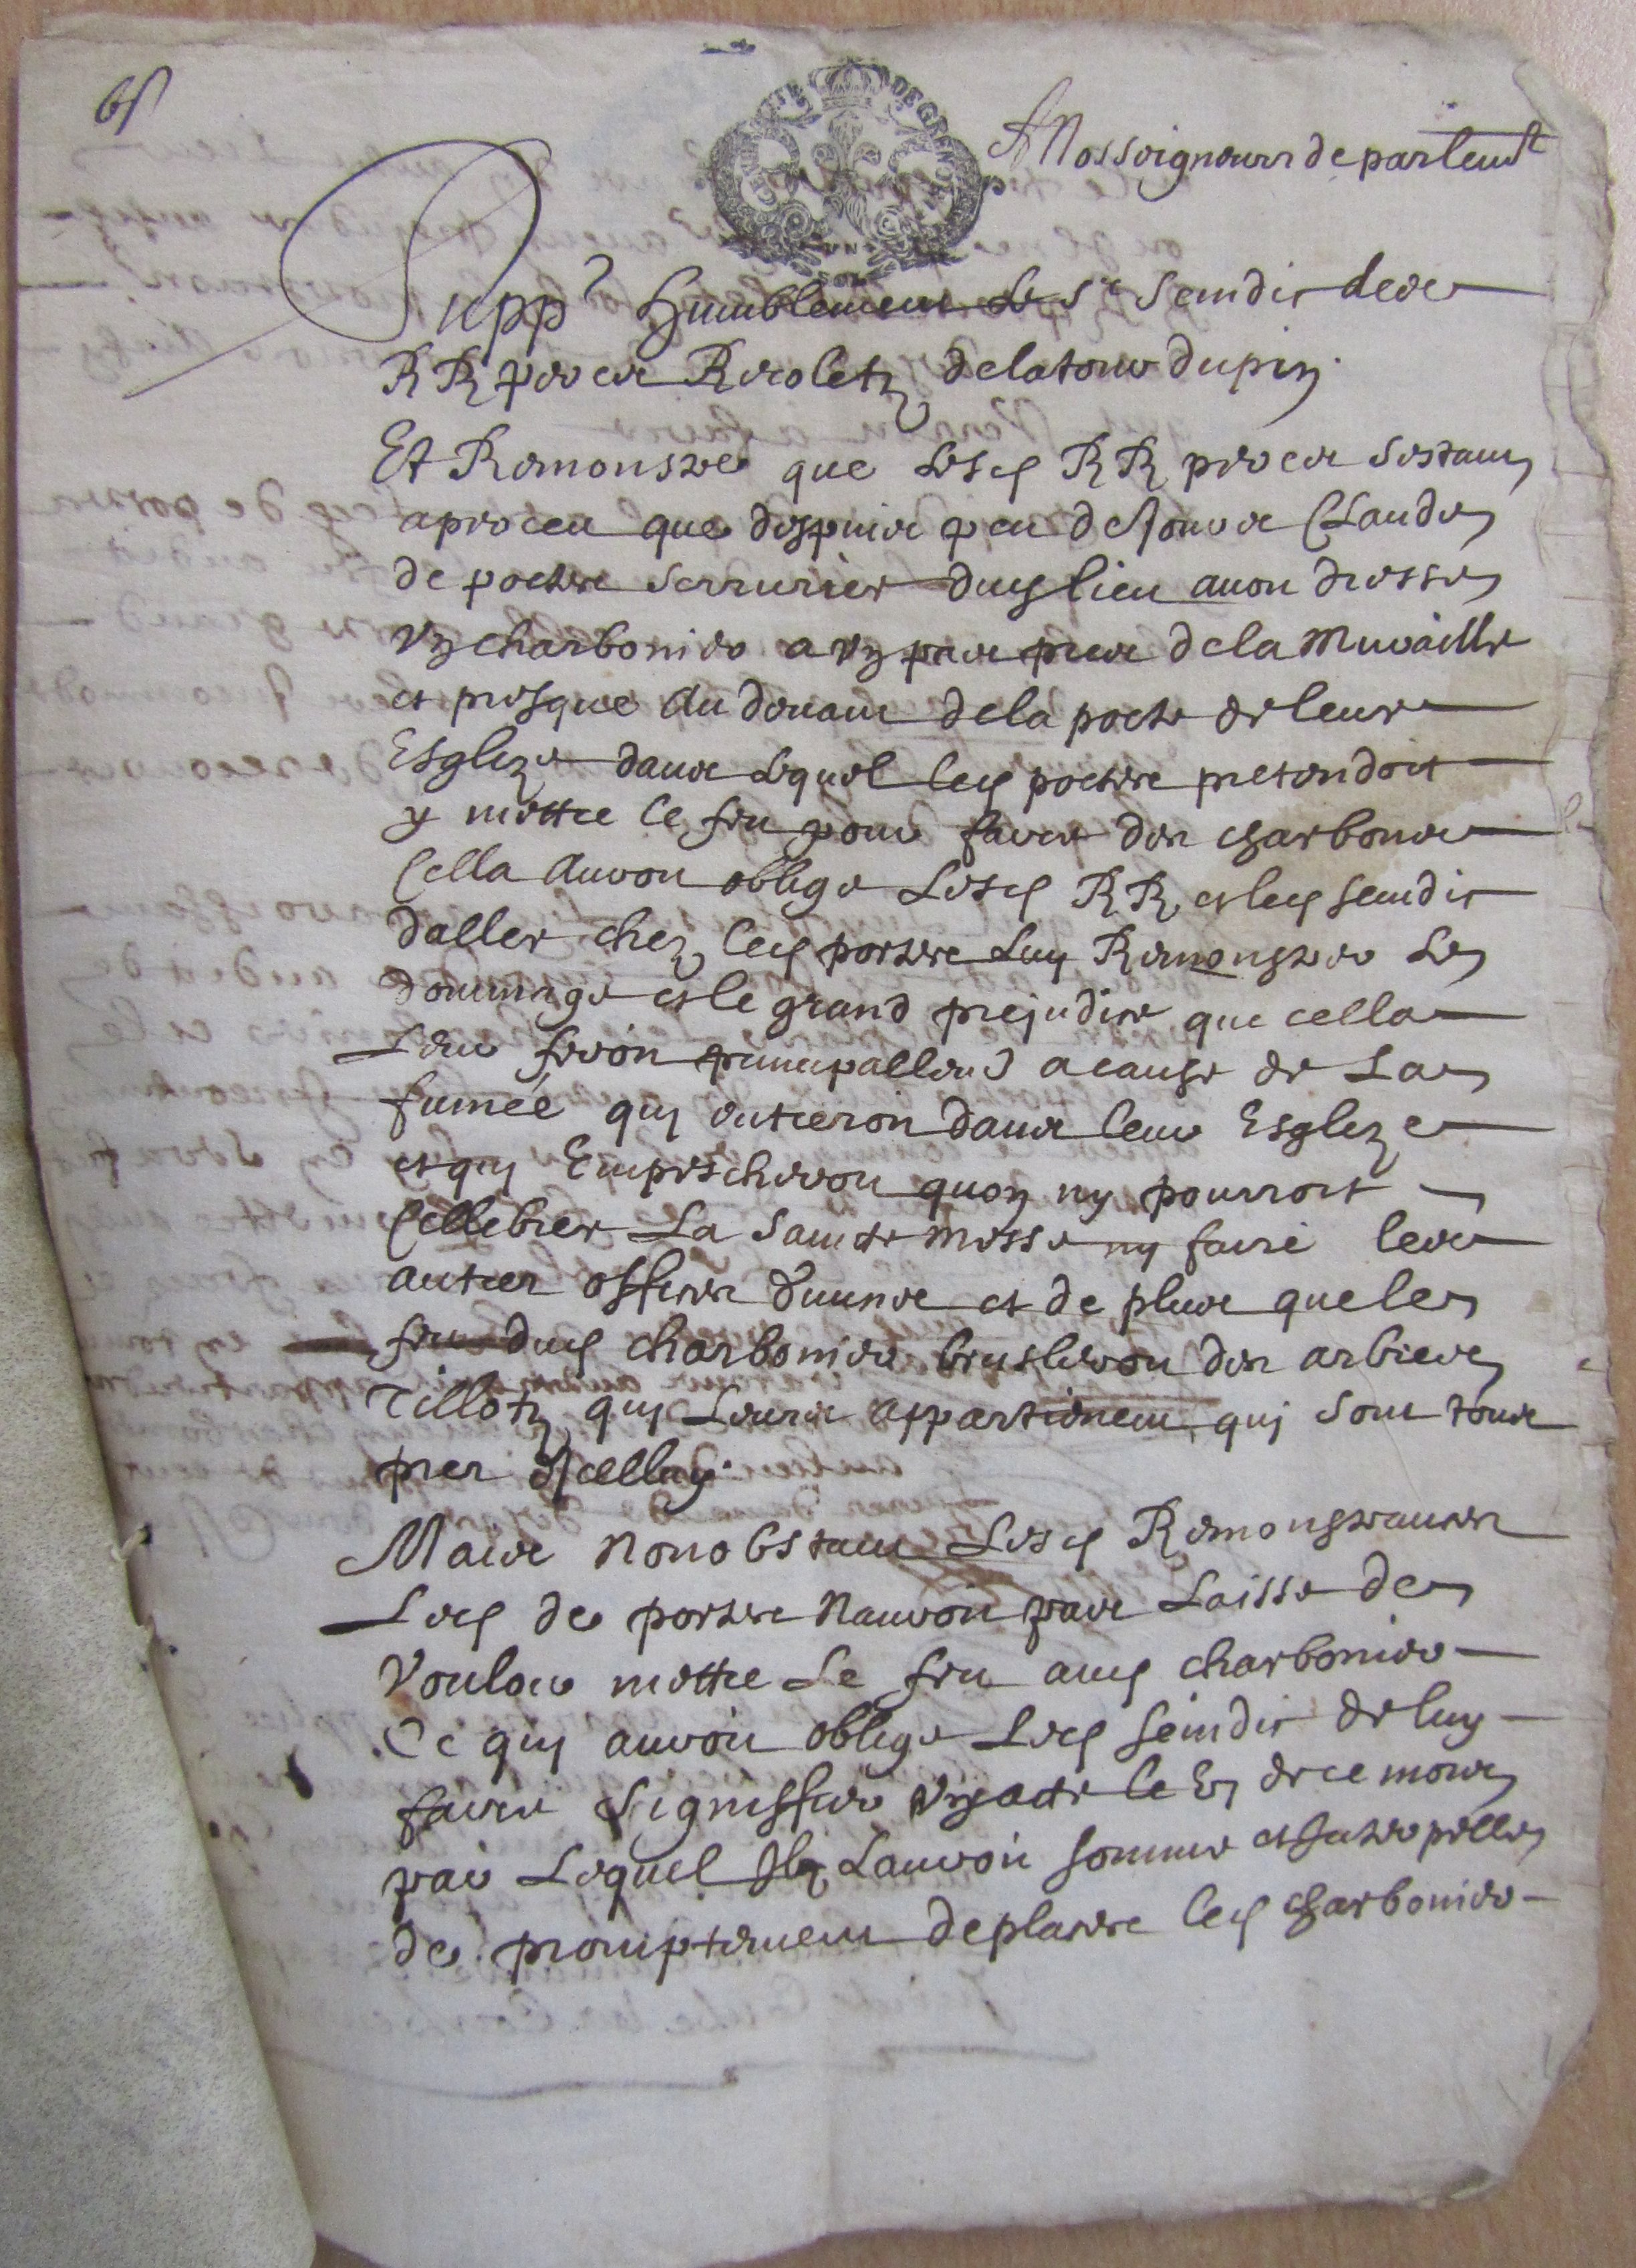 65
GENERALITE DE GRENOBLE
A Nosseigneurs de parlemt
Supp.t Humblement Le Sr Scindic des
RR peres Recoletz de la tour du pin
Et Remonstre que Lesd RR peres sestant
aperceu que despuis peu de Jours Claude
de portere serrurier dud lieu avoit dressé
un charbonier a un pas pres de la Muraille
et presque au devant de la porte de leur
Esglize dans Lequel led portere pretendoit
y mettre le feu pour faire des charbons
Cella auroit obligé Lesd RR et led scindic
daller chez led portere Luy Remonstrer Le
dommage et le grand prejudice que cella
Leur feroit principallemt a cause de La
fumée quy entreroit dans leur Esglize
et quy Empescheroit quon ny pourroit
Cellebrer La Saincte Messe ny faire les
autres offices divins et de plus que le
feu dud charbonier brusleroit des arbres
Tillotz quy Leurs appartienent quy sont tous
pres dicelluy.
Mais Nonobstant Lesd Remonstrances
Led de portere Nauroit pas Laissé de
Vouloir mettre Le feu aud charbonier
Ce quy auroit obligé Led scindic de luy
faire signiffier un acte le de ce mois
par Lequel Il Lauroit sommé et Interpellé
de promptement deplacer led charbonier